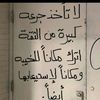 لا تأخذ جرعه
كبيرة من الثقة
اترك مكاناً للخيبه
ومكاناً لإستيعابها
أيضاً